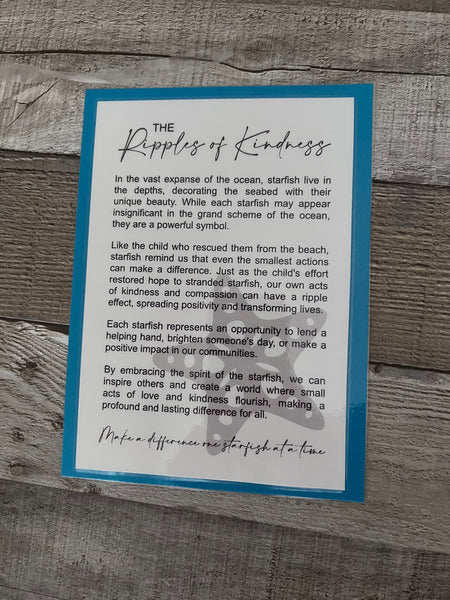 THE
Ripples of Kindness
In the vast expanse of the ocean, starfish live in
the depths, decorating the seabed with their
unique beauty. While each starfish may appear
insignificant in the grand scheme of the ocean,
they are a powerful symbol.
Like the child who rescued them from the beach,
starfish remind us that even the smallest actions
can make a difference. Just as the child's effort
restored hope to stranded starfish, our own acts
of kindness and compassion can have a ripple
effect, spreading positivity and transforming lives.
Each starfish represents an opportunity to lend a
helping hand, brighten someone's day, or make a
positive impact in our communities.
By embracing the spirit of the starfish, we can
inspire others and create a world where small
acts of love and kindness flourish, making a
profound and lasting difference for all.
Make a difference one starfish at a time